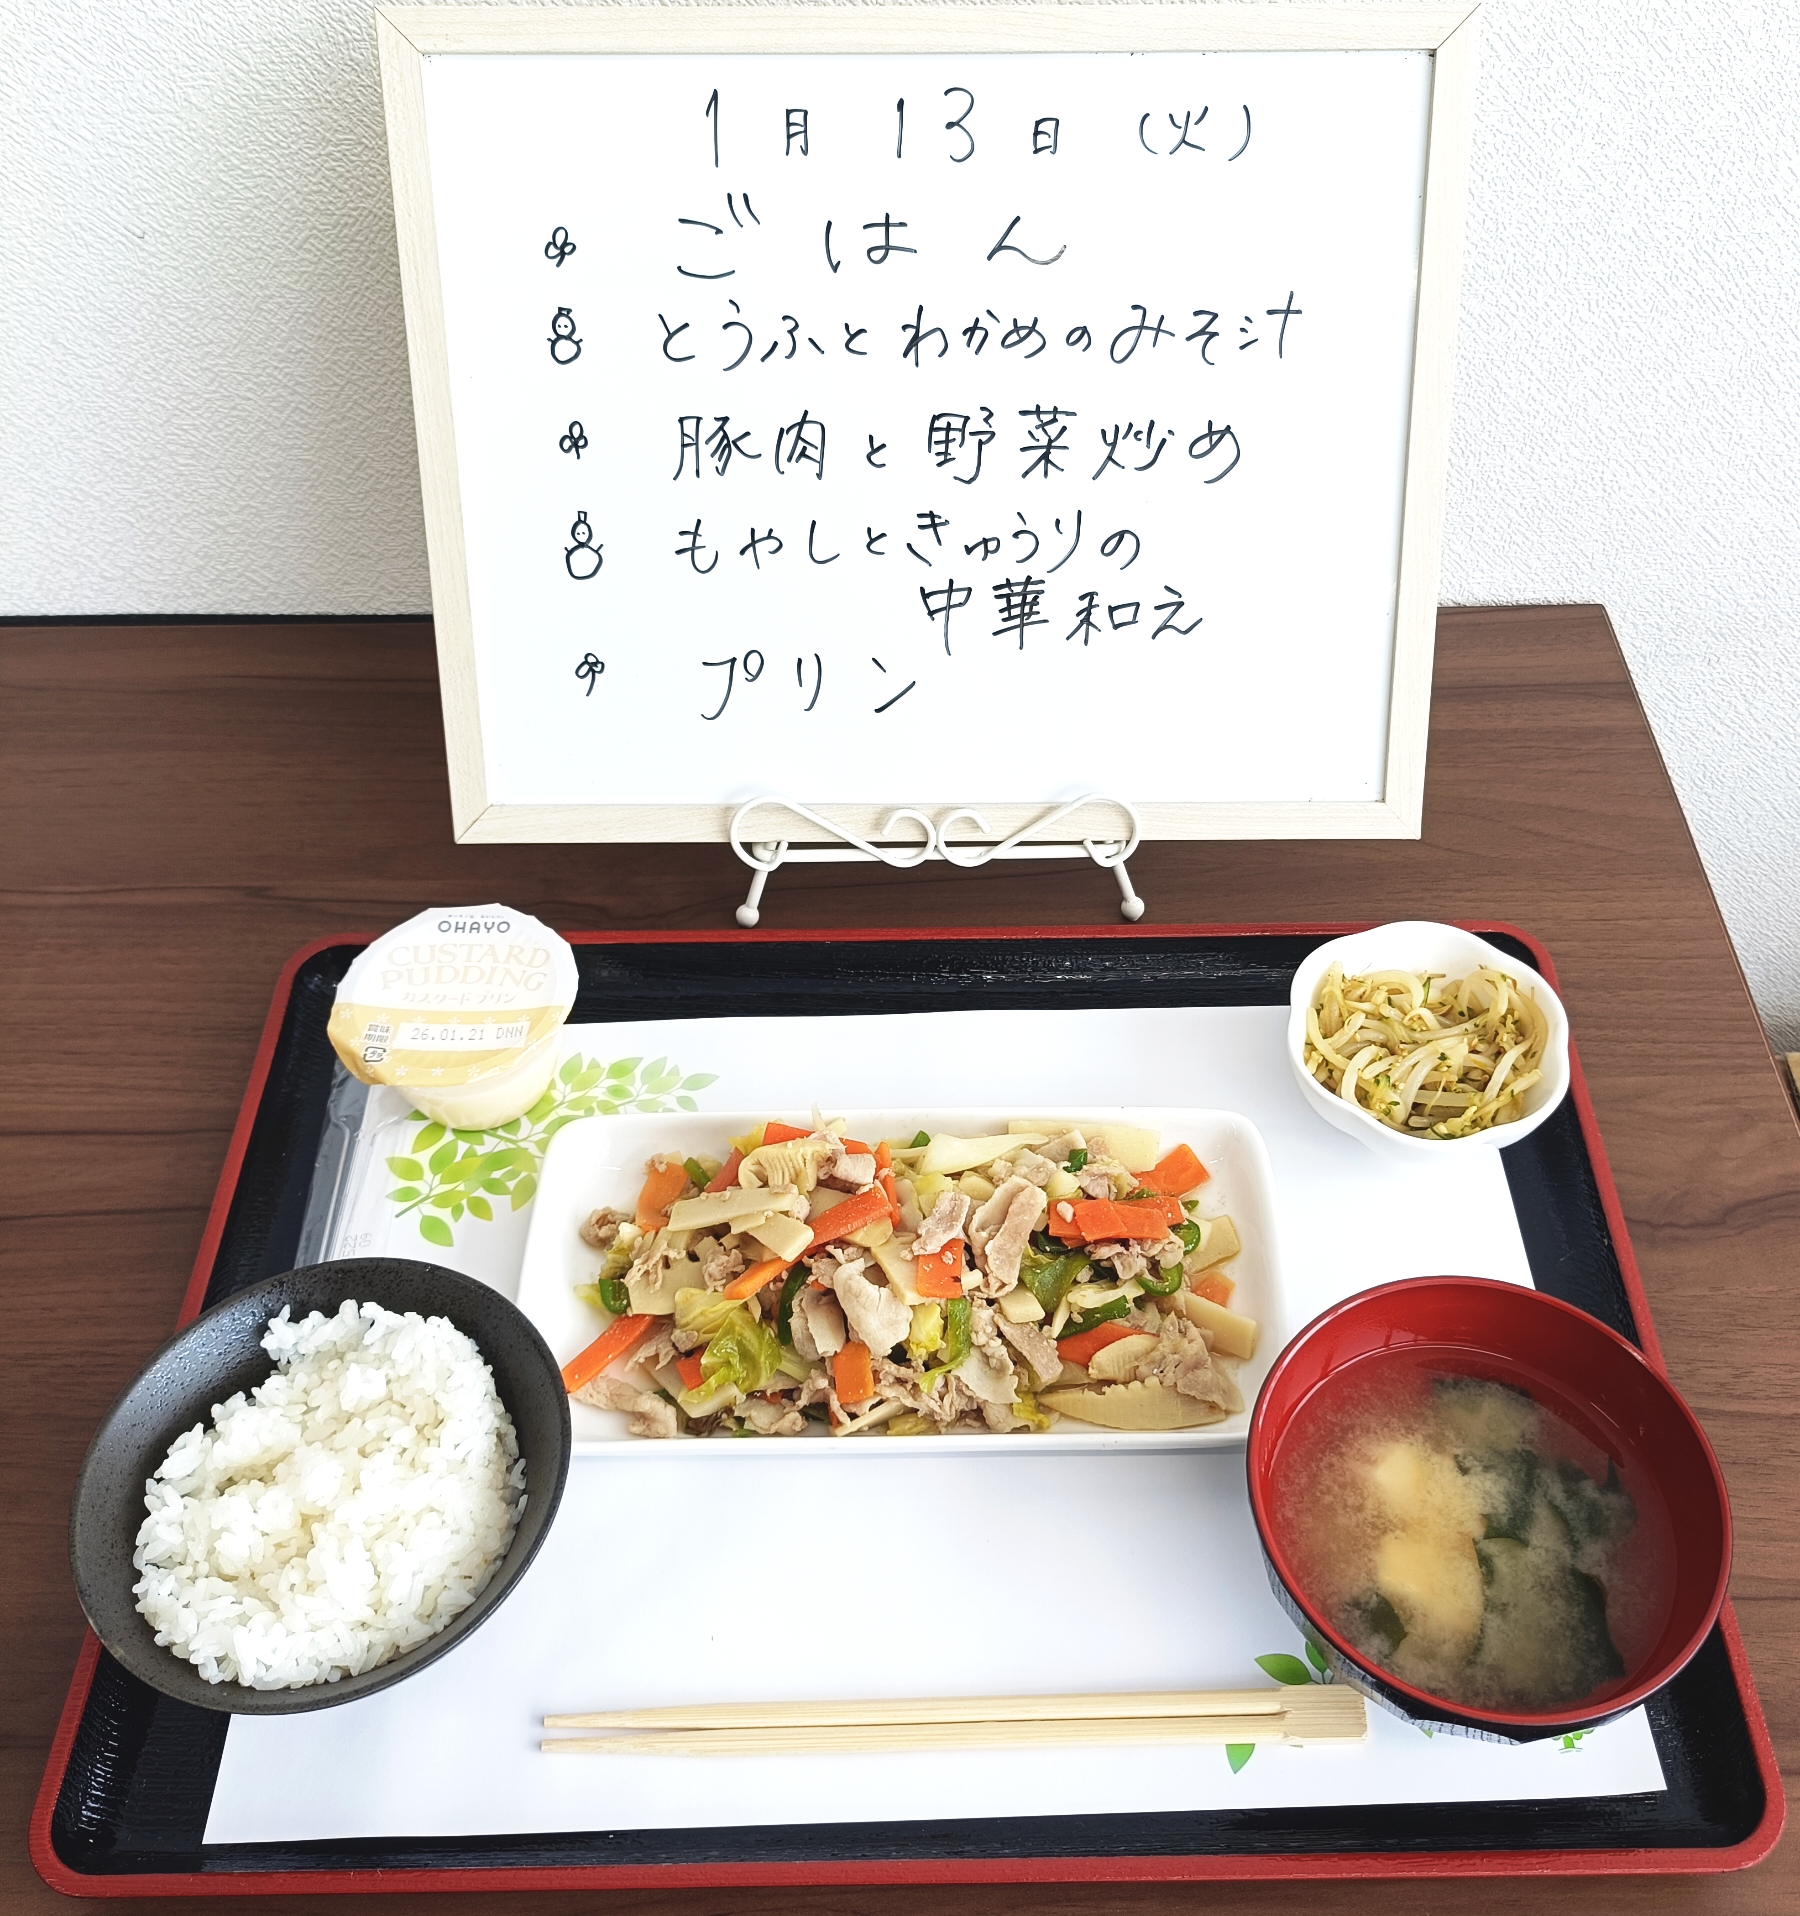 1月13日(火)
ごはん
とうふとわかめのみそ汁
豚肉と野菜炒め
もやしときゅうりの
中華和え
プリン
OHAYO
CUSTARD
PUDDING
カスタードプリン
賞味
期限
26.01.21 DNN